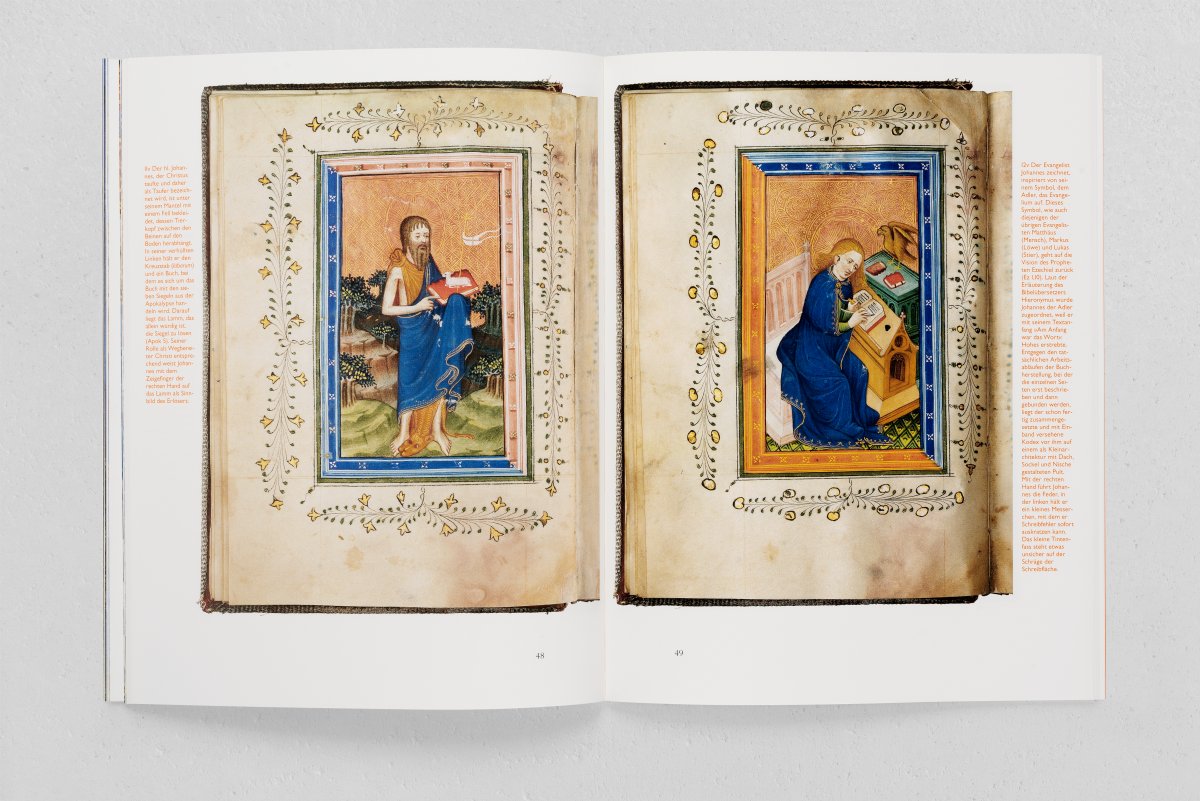 11v Der hl. Johan-
nes, der Christus
taufte und daher
als Täufer bezeich-
net wird, ist unter
seinem Mantel mit
einem Fell beklei-
det, dessen Tier-
kopf zwischen den
Beinen auf den
Boden herabhängt.
In seiner verhüllten
Linken hält er den
Kreuzstab (übermalt)
und ein Buch, bei
dem es sich um das
Buch mit den sie-
ben Siegeln aus der
Apokalypse han-
deln wird. Darauf
liegt das Lamm, das
allein würdig ist,
die Siegel zu lösen
(Apok 5). Seiner
Rolle als Wegberei-
ter Christi entspre-
chend weist Johan-
nes mit dem
Zeigefinger der
rechten Hand auf
das Lamm als Sinn-
bild des Erlösers.
48
Der Evangelist
Johannes zeichnet,
inspiriert von sei-
nem Symbol, dem
Adler, das Evange-
lium auf. Dieses
Symbol, wie auch
diejenigen der
übrigen Evangelis-
ten Matthäus
(Mensch), Markus
(Löwe) und Lukas
(Stier), geht auf die
Vision des Prophe-
ten Ezechiel zurück
(Ez 1,10). Laut der
Erläuterung des
Bibelübersetzers
Hieronymus wurde
Johannes der Adler
zugeordnet, weil er
mit seinem Textan-
fang »Am Anfang
war das Wort«
Hohes erstrebte.
Entgegen den tat-
sächlichen Arbeits-
abläufen der Buch-
herstellung, bei der
die einzelnen Sei-
ten erst beschrie-
ben und dann
gebunden werden,
liegt der schon fer-
tig zusammenge-
setzte und mit Ein-
band versehene
Kodex vor ihm auf
einem als Kleinar-
chitektur mit Dach,
Sockel und Nische
gestalteten Pult.
Mit der rechten
Hand führt Johan-
nes die Feder, in
der linken hält er
ein kleines Messer-
chen, mit dem er
Schreibfehler sofort
auskratzen kann.
Das kleine Tinten-
fass steht etwas
unsicher auf der
Schräge der
Schreibfläche.
49